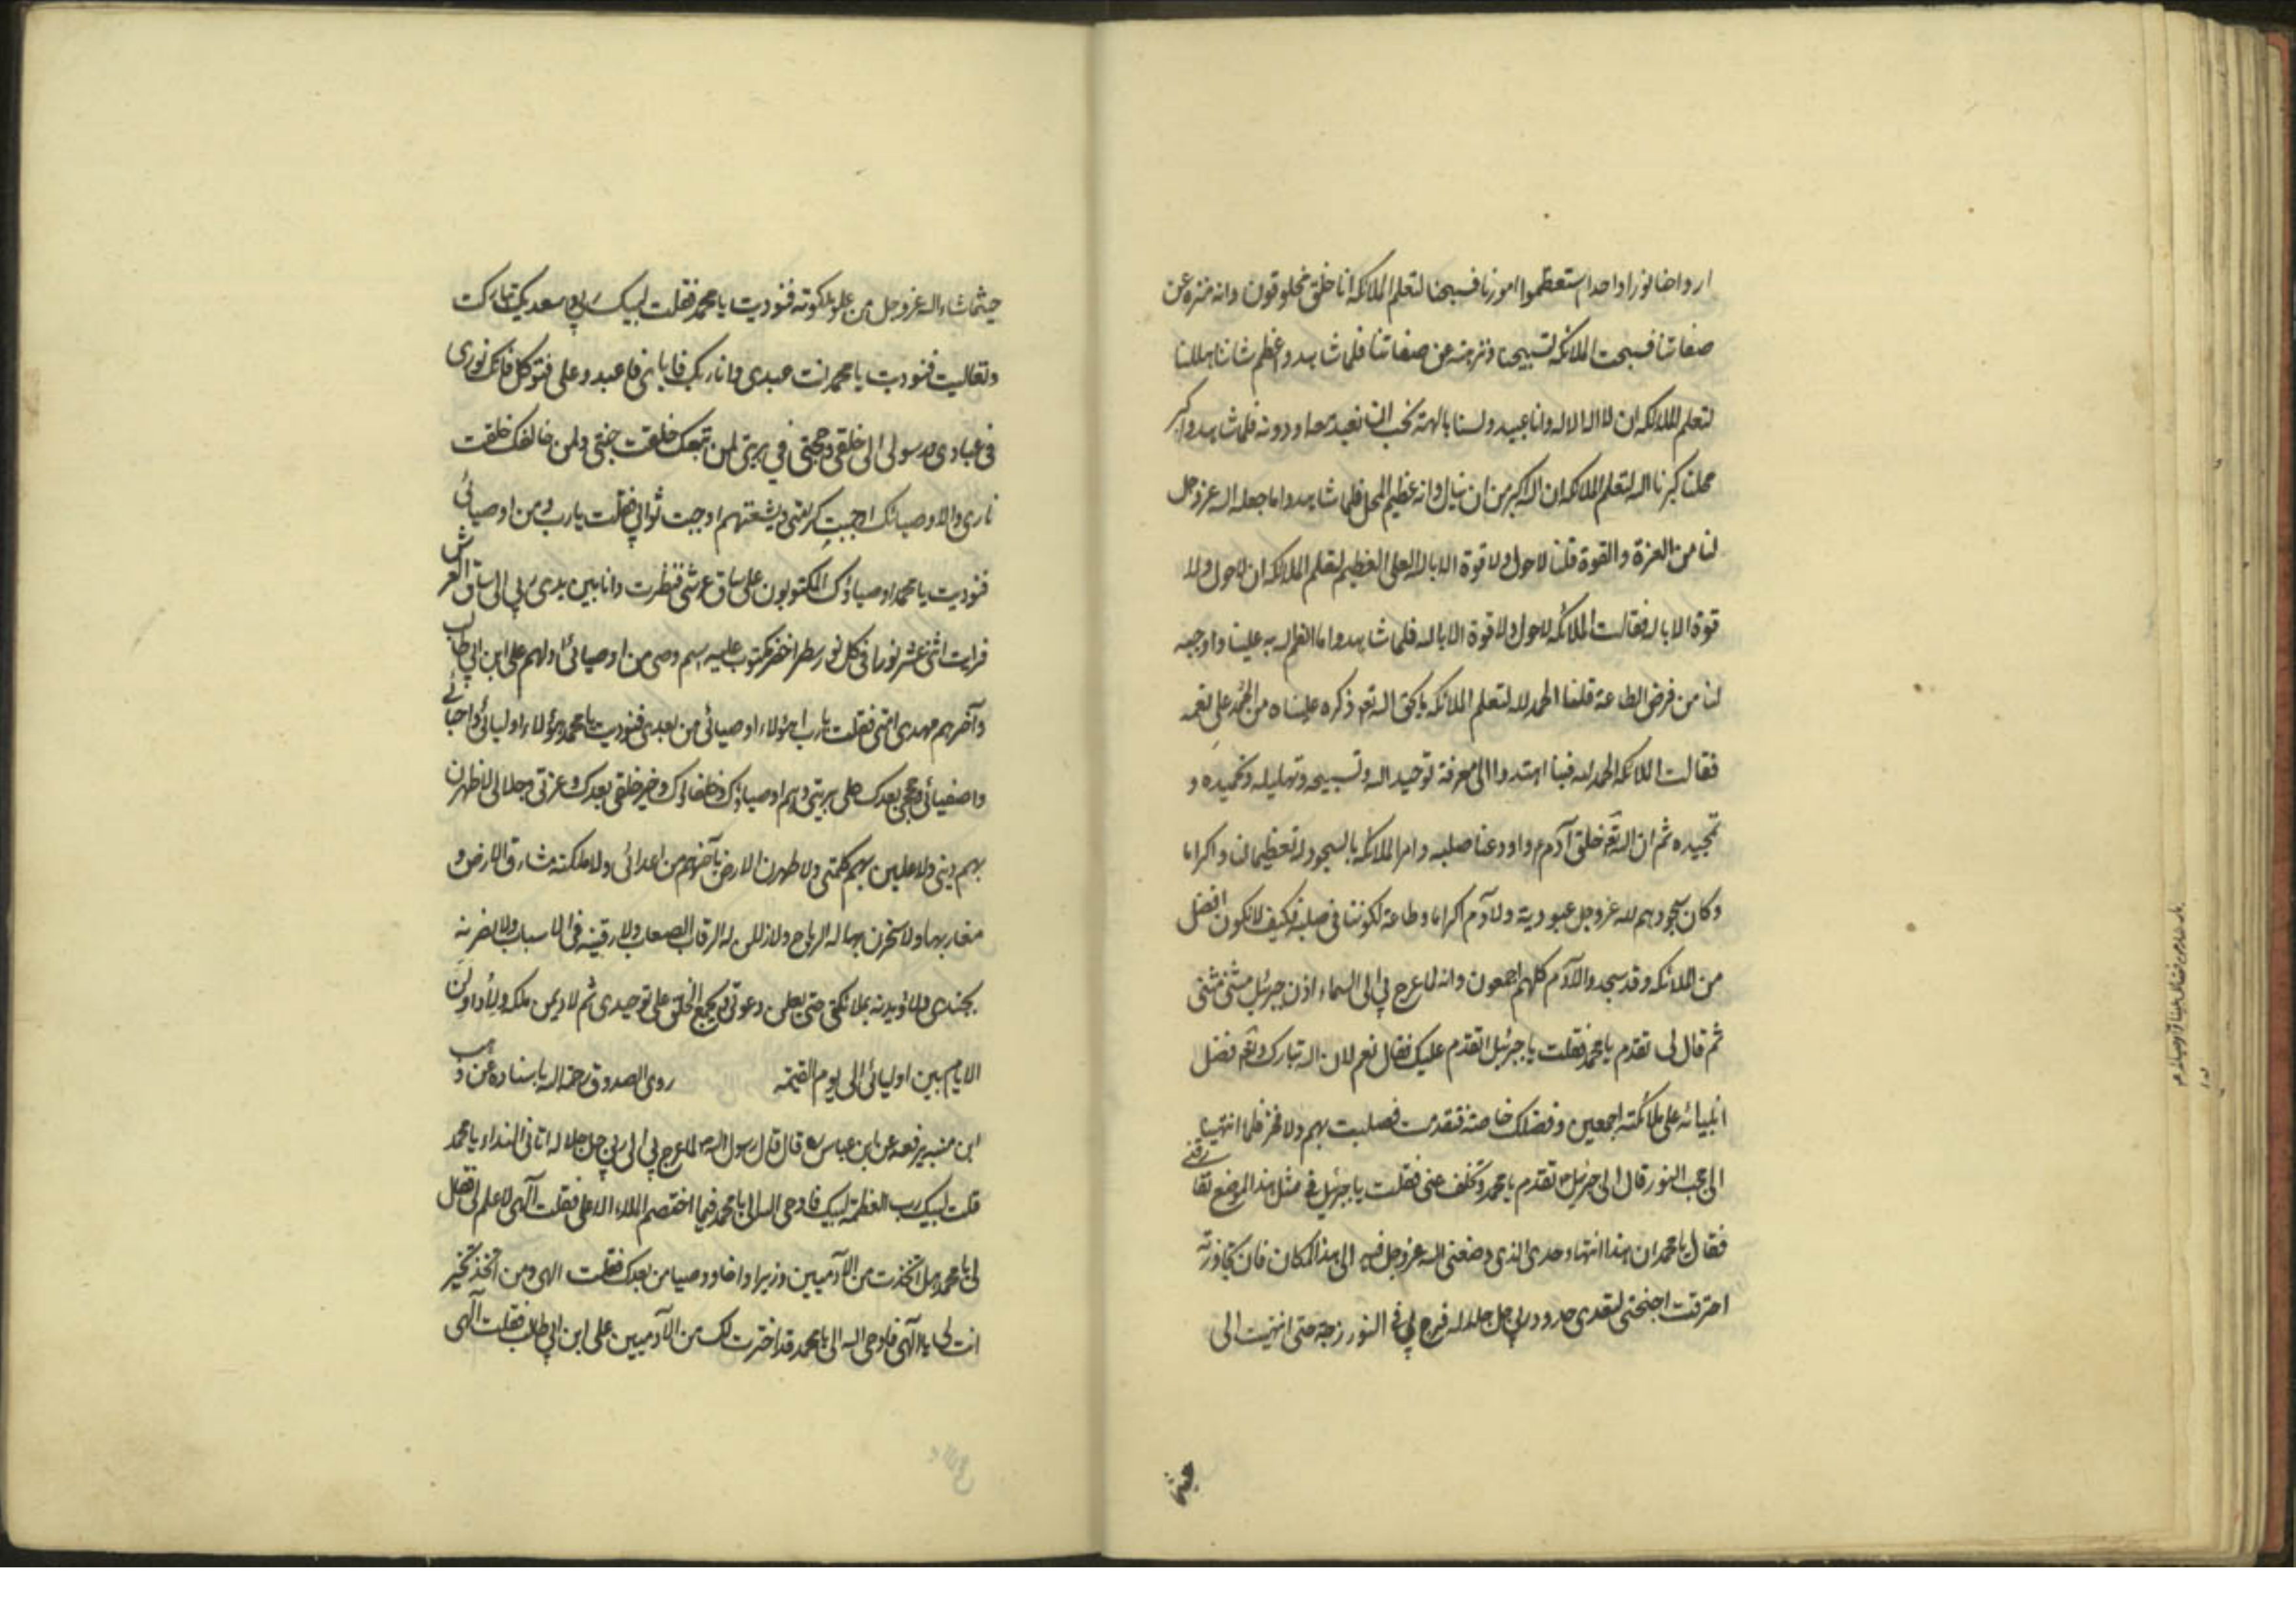 ارواحنا نورا واحدا استعظموا امورنا فسبحنا لتعلم الملائكة انا خلق مخلوقون وانه منزه عن
صفاتنا فسبحت الملائكة لتسبيحنا ونزهته عن صفاتنا فلما شاهدوا عظم شاننا هللنا
لتعلم الملائكة ان لا اله الا الله وانا عبيد ولسنا بالهة يجب ان نعبد معه او دونه فلما شاهدوا كبر
محلنا كبرنا الله لتعلم الملائكة ان الله اكبر من ان ينال وانه عظيم المحل فلما شاهدوا ما جعله الله عز وجل
لنا من العزة والقوة قلنا لا حول ولا قوة الا بالله العلى العظيم لتعلم الملائكة ان لا حول ولا
قوة الا بالله فقالت الملائكة لا حول ولا قوة الا بالله فلما شاهدوا ما انعم الله به علينا واوجبه
لنا من فرض الطاعة قلنا الحمد لله لتعلم الملائكة ما يحق لله تعه ذكره علينا من الحمد على نعمه
فقالت الملائكة الحمد لله فبنا اهتدوا الى معرفة توحيد الله وتسبيحه وتهليله وتحميده و
تمجيده ثم ان الله تعه خلق آدم م واودعنا صلبه وامر الملائكة بالسجود له تعظيما لنا واكراما
وكان سجودهم لله عز وجل عبودية ولآدم اكراما وطاعة لكوننا فى صلبه فكيف لا نكون افضل
من الملائكة وقد سجدوا لآدم كلهم اجمعون وانه لما عرج بى الى السماء اذن جبرئيل مثنى مثنى
ثم قال لى تقدم يا محمد فقلت يا جبرئيل اتقدم عليك فقال نعم لان الله تبارك وتعه فضل
انبيائه على ملائكته اجمعين وفضلك خاصة فتقدمت فصليت بهم ولا فخر فلما انتهينا
الى حجب النور قال لى جبرئيل تقدم يا محمد وتخلف عنى فقلت يا جبرئيل فى مثل هذا الموضع تفارقنى
فقال يا محمد ان هذا انتهاء حدى الذى وضعنى الله عز وجل فيه الى هذا المكان فان تجاوزته
احترقت اجنحتى لتعدى حدود ربى جل جلاله فزج بى فى النور زجة حتى انتهيت الى
حيثما
حيثما شاء الله عز وجل من علو ملكوته فنوديت يا محمد فقلت لبيك ربى وسعديك تباركت
وتعاليت فنوديت يا محمد انت عبدى وانا ربك فاياى فاعبد وعلى فتوكل فانك نورى
فى عبادى ورسولى الى خلقى وحجتى فى بريتى لمن تبعك خلقت جنتى ولمن خالفك خلقت
نارى ولاوصيائك اوجبت كرامتى ولشيعتهم اوجبت ثوابى فقلت يا رب ومن اوصيائى
فنوديت يا محمد اوصياؤك المكتوبون على ساق عرشى فنظرت وانا بين يدى ربى الى ساق العرش
فرايت اثنى عشر نورا فى كل نور سطر اخضر مكتوب عليه اسم وصى من اوصيائى اولهم على ابن ابى طالب
وآخرهم مهدى امتى فقلت يا رب اهؤلاء اوصيائى من بعدى فنوديت يا محمد هؤلاء اوليائى واحبائى
واصفيائى وحججى بعدك على بريتى وهم اوصياؤك وخلفاؤك وخير خلقى بعدك وعزتى وجلالى لاظهرن
بهم دينى ولاعلين بهم كلمتى ولاطهرن الارض بآخرهم من اعدائى ولاملكنه مشارق الارض و
مغاربها ولاسخرن له الرياح ولاذللن له الرقاب الصعاب ولارقينه فى الاسباب ولانصرنه
بجندى ولاؤيدنه بملائكتى حتى يعلن دعوتى ويجمع الخلق على توحيدى ثم لاديمن ملكه ولاداولن
الايام بين اوليائى الى يوم القيمة روى الصدوق رحمه الله باسناده عن وهب
ابن منبه يرفعه عن ابن عباس قال قال رسول الله لما عرج بى الى ربى جل جلاله اتانى النداء يا محمد
قلت لبيك رب العظمة لبيك فاوحى الله الى يا محمد فيما اختصم الملاء الاعلى فقلت آلهى لا علم لى فقال
لى يا محمد هل اتخذت من الآدميين وزيرا واخا ووصيا من بعدك فقلت الهى ومن اتخذ تخير
انت لى يا آلهى فاوحى الله الى يا محمد قد اخترت لك من الآدميين على ابن ابى طالب فقلت آلهى